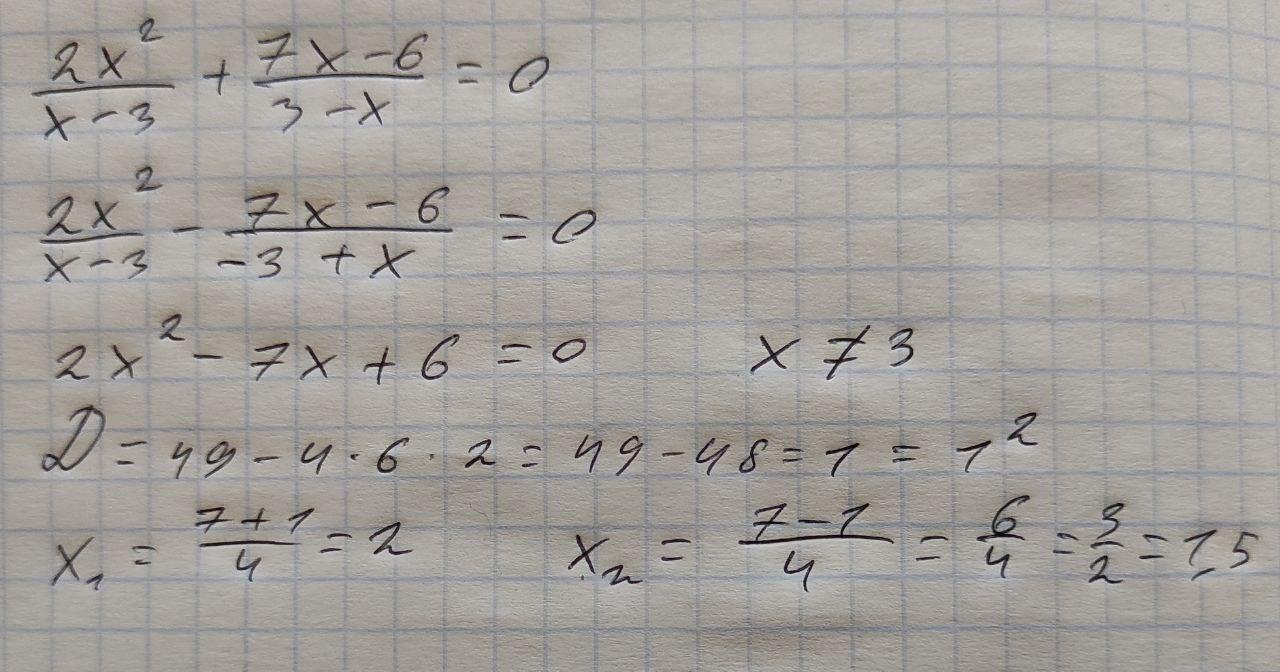 2x²/(x-3) + (7x-6)/(3-x) = 0
2x²/(x-3) - (7x-6)/(-3+x) = 0
2x² - 7x + 6 = 0 x ≠ 3
D = 49 - 4·6·2 = 49 - 48 = 1 = 1²
x₁ = (7+1)/4 = 2 x₂ = (7-1)/4 = 6/4 = 3/2 = 1,5